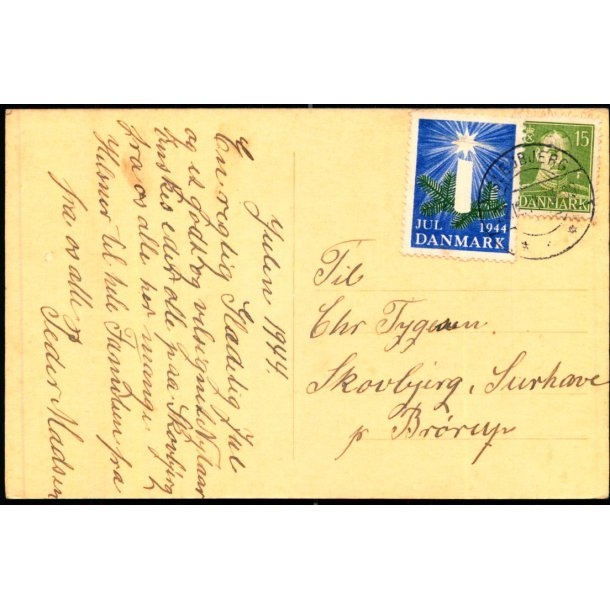 Julen 1944.
En rigtig Glædelig Jul
og et godt og velsignet Nytaar
ønskes eder alle paa Skovbjerg
fra os alle her mange
Hilsner til hele Familien fra
fra os alle
Peder Madsen
JUL 1944
DANMARK
15
DANMARK
Til
Chr Tygesen.
Skovbjerg, Surhave
pr Brörup